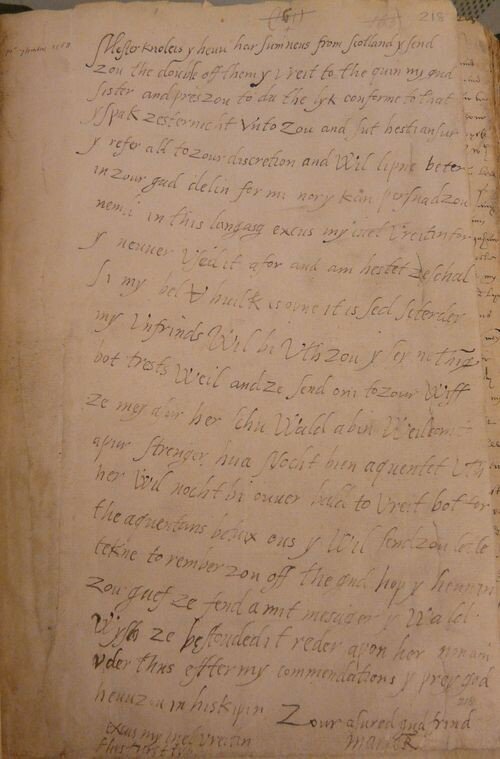 218
Mester Knoleis y heuu har sum neus from Scotland y send
zou the double off them y vreit to the quin my gud
sister and pres zou to du the lyk conforme to that
y spak zesternicht vnto zou and sut hesti ansur
y refer all to zour discretion and wil lipne beter
in zour gud delin for mi nor y kan persuad zou
nemli in this langasg excus my iuel vreitin for
y neuuer vsed it afor and am hestet ze schal
si my bel whuilk is opne it is sed seterdey
my vnfrinds wil bi vth zou y sey nething
bot trests weil and ze send oni to zour wiff
ze mey asur her schu wald a bin weilcom to
a pur strenger hua nocht bien aquentet vth
her wil nocht bi ouuer bald to vreit bot for
the aquentans betuix ous y wil send zou letle
tekne to rember zou off the gud hop y heuu in
zou guef ze fend a mit mesager y wald
wysh ze bestouded it reder apon her nor ani
vder thus effter my commendations y prey god
heuu zou in his kipin
Zour asured gud frind
Marie R
excus my iuel vreitin
thes furst tym